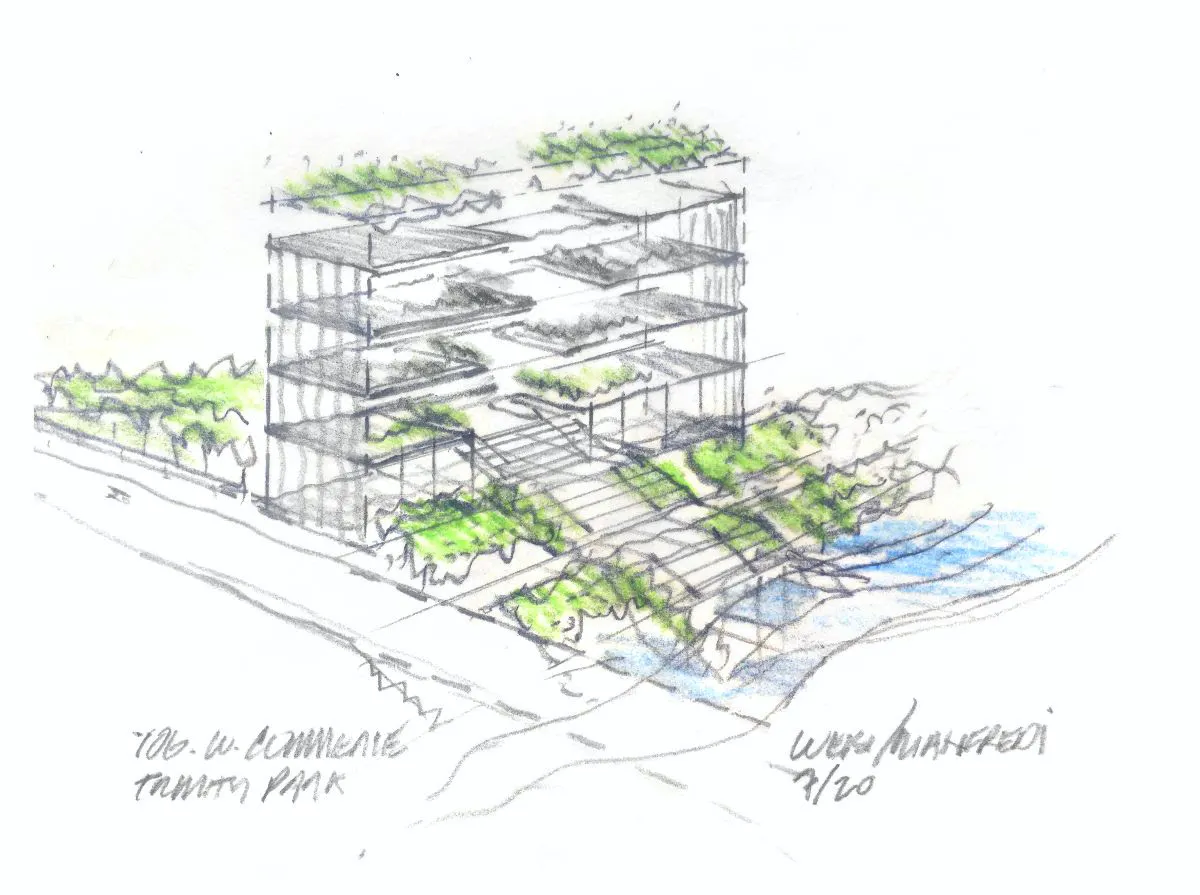 106. W. COMMERCE
TRINITY PARK
WEISS/MANFREDI
7/20